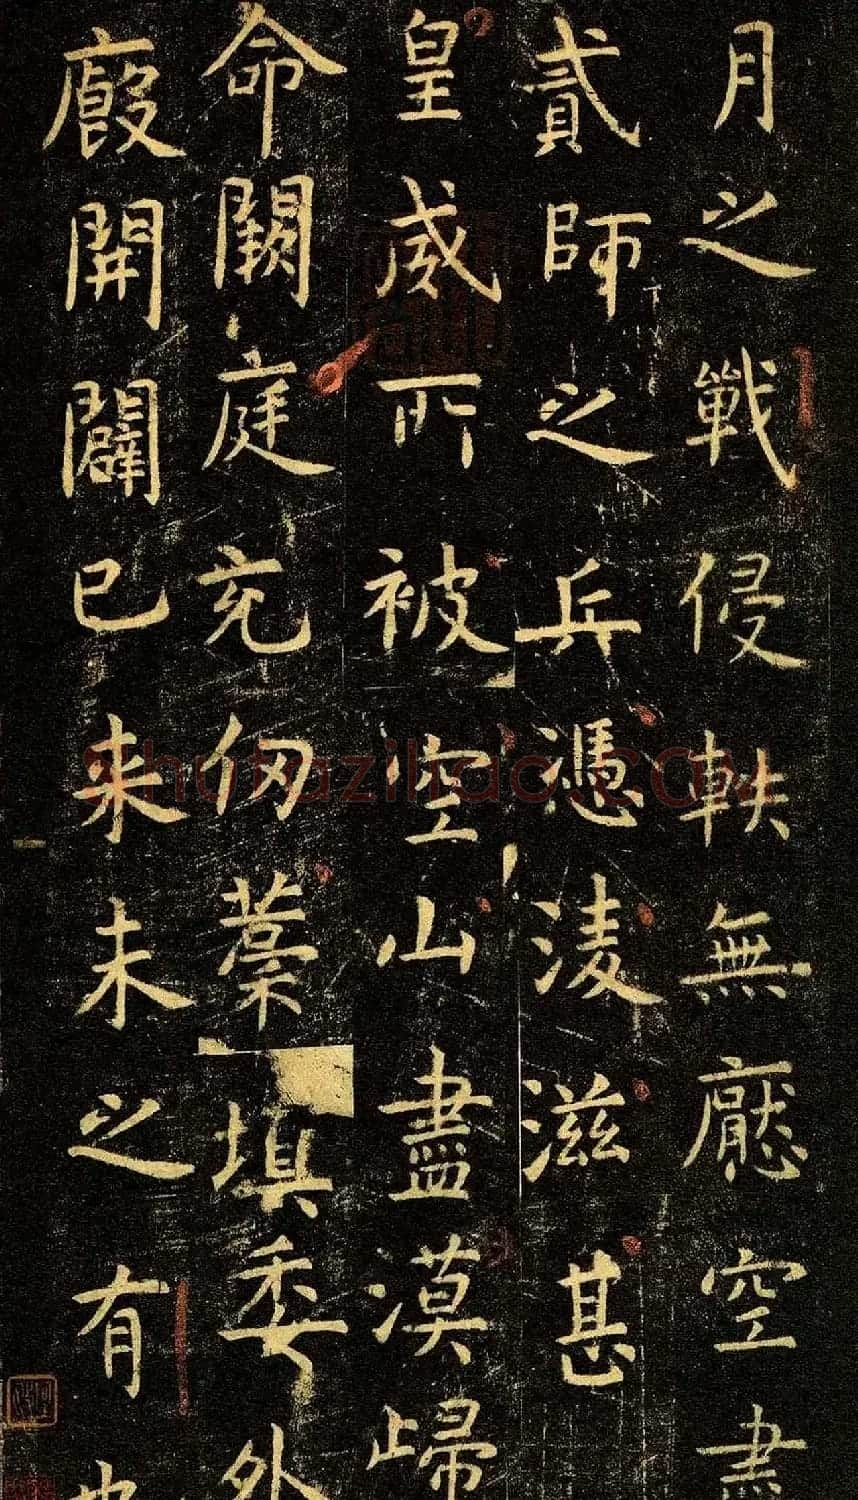 月之戰侵軼無厭空盡
貳師之兵憑淩滋甚
皇威所被空山盡漠歸
命闕庭充仞藁填委外
廄開闢已来未之有也
shufaziliao.com